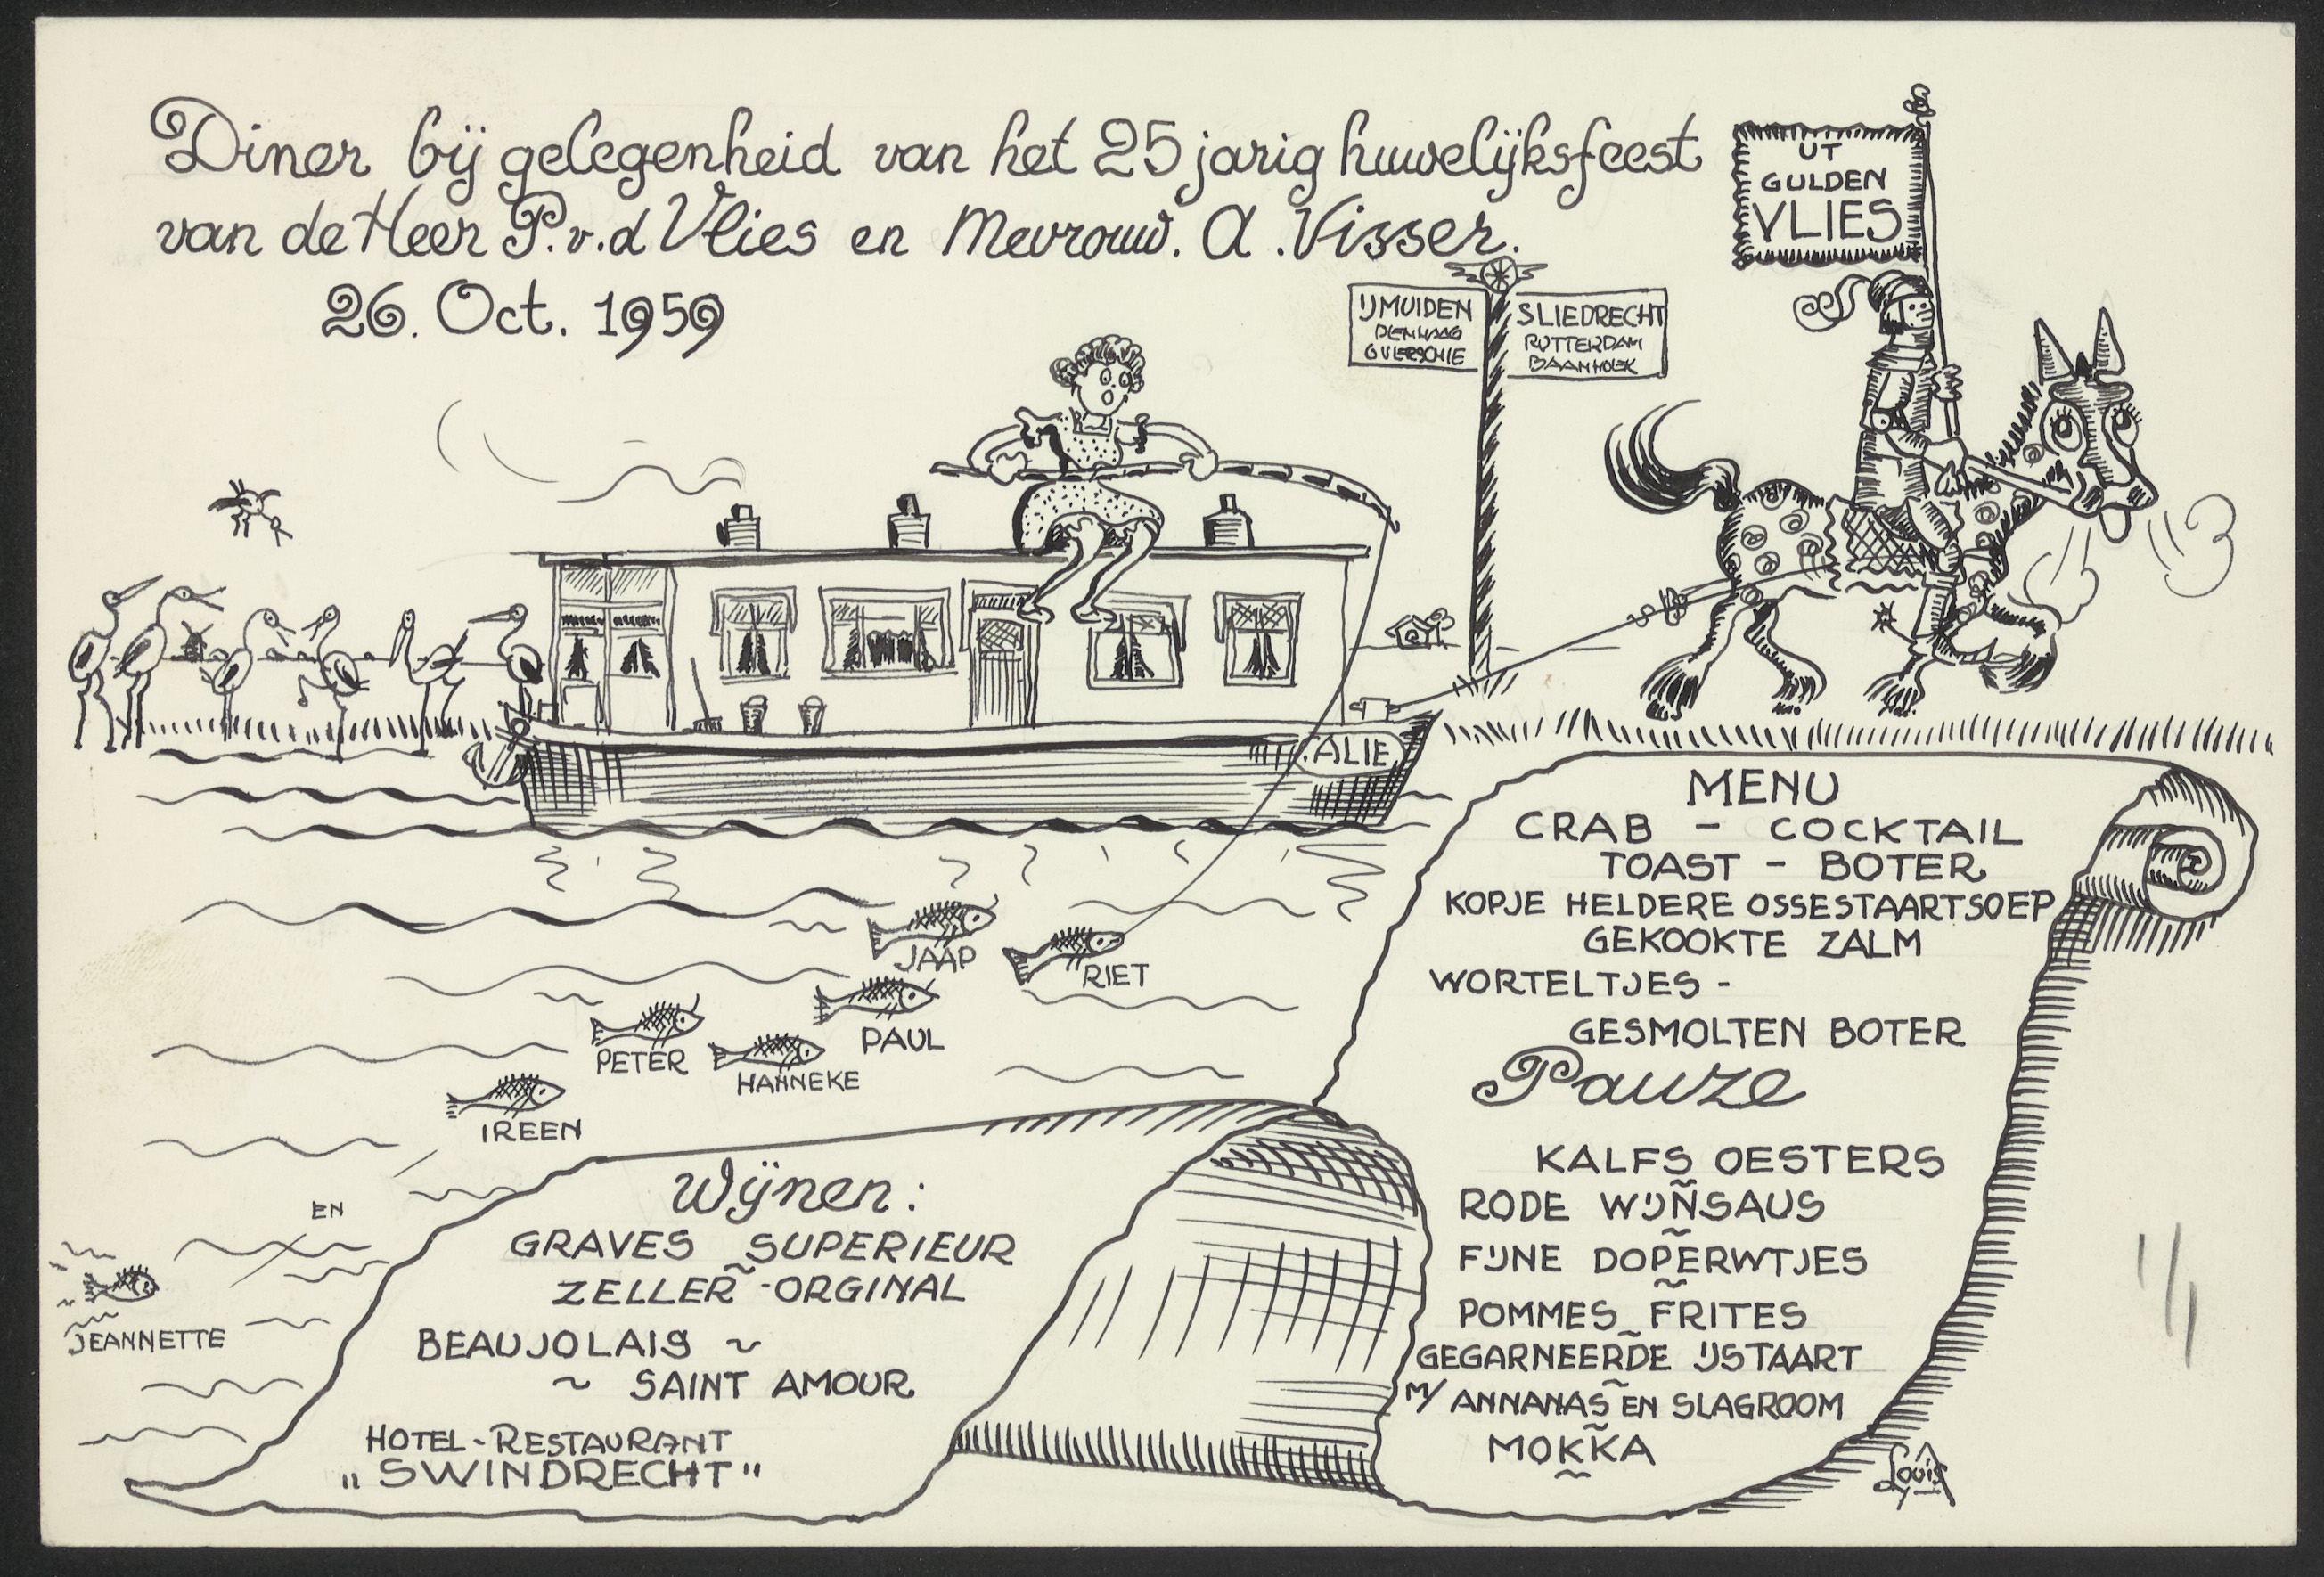 Diner bij gelegenheid van het 25 jarig huwelijksfeest
van de Heer P.v.d Vlies en Mevrouw. A. Visser.
26. Oct. 1959
UT
GULDEN
VLIES
IJMUIDEN
DENHAAG
OVERSCHIE
SLIEDRECHT
ROTTERDAM
BAANHOEK
ALIE
JAAP
RIET
PAUL
PETER
HANNEKE
IREEN
EN
JEANNETTE
MENU
CRAB - COCKTAIL
TOAST - BOTER
KOPJE HELDERE OSSESTAARTSOEP
GEKOOKTE ZALM
WORTELTJES -
GESMOLTEN BOTER
Pauze
KALFS OESTERS
~
RODE WIJNSAUS
~
FIJNE DOPERWTJES
~
POMMES FRITES
~
GEGARNEERDE IJSTAART
~
M/ ANNANAS EN SLAGROOM
~
MOKKA
~
Wijnen:
GRAVES SUPERIEUR
~
ZELLER - ORGINAL
BEAUJOLAIS ~
~ SAINT AMOUR
HOTEL - RESTAURANT
„SWINDRECHT"
Louis